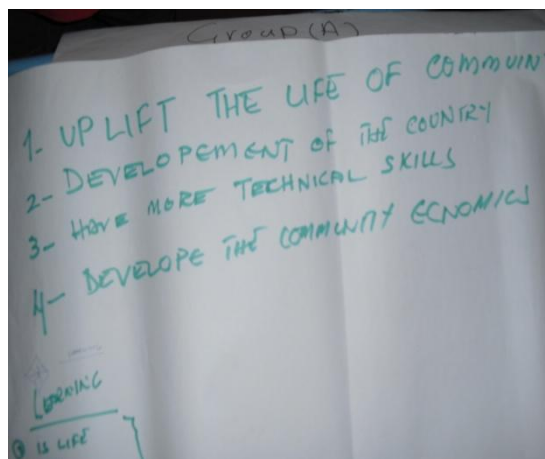 Group (A)
1- UPLIFT THE LIFE OF COMMUIN
2- DEVELOPEMENT OF THE COUNTRY
3- HAVE MORE TECHNICAL SKILLS
4- DEVELOPE THE COMMUNITY ECNOMICS
LEARNING
IS LIFE